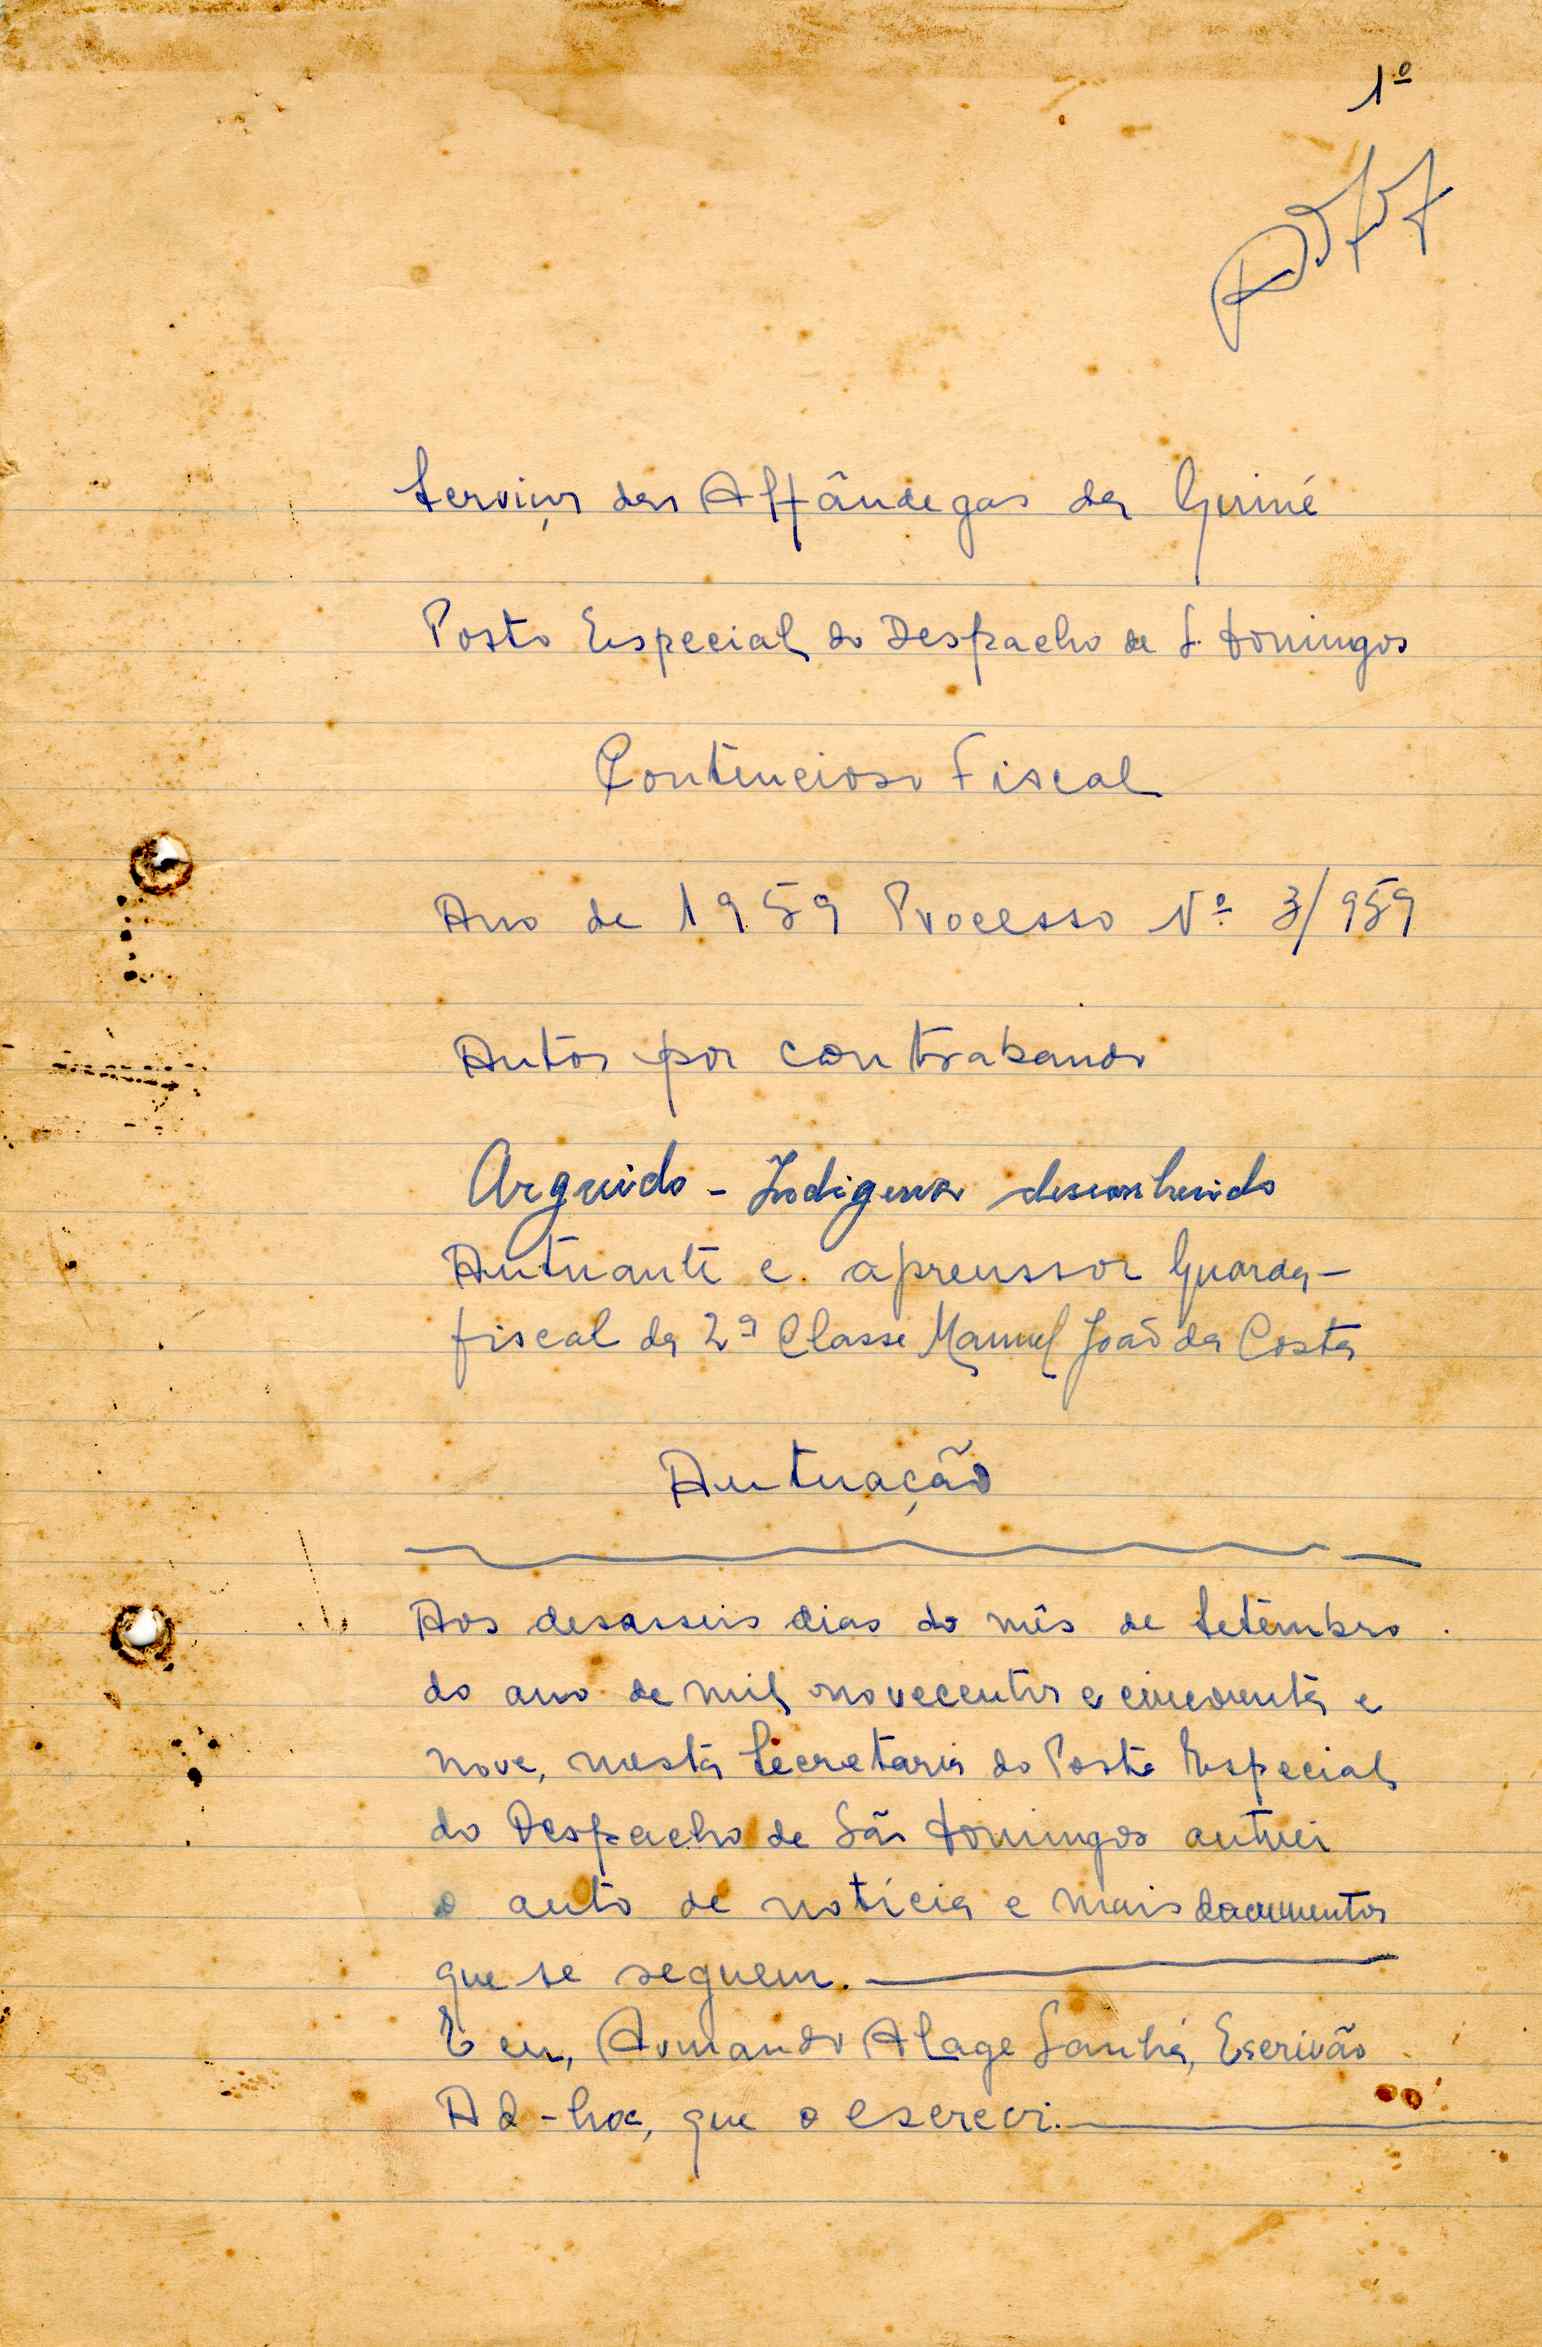 1º
Serviços das Alfândegas da Guiné
Posto Especial do Despacho de S. Domingos
Contencioso Fiscal
Ano de 1959 Processo Nº 3/959
Autos por contrabando
Arguido - Indigena desconhecido
Autuante e apreenssor Guarda-
fiscal da 2ª Classe Manuel João da Costa
Autuação
Aos desasseis dias do mês de Setembro
do ano de mil novecentos e cincoenta e
nove, nesta Secretaria do Posto Especial
do Despacho de São Domingos autuei
o auto de notícia e mais documentos
que se seguem.
E eu, Armando Alage Sanhá, Escrivão
Ad-hoc, que o escrevi.